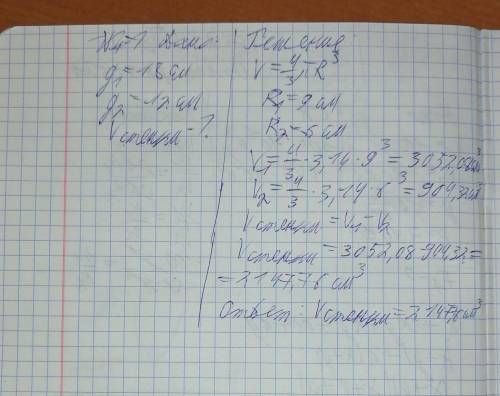 №1 Дано:
d₁=18 см
d₂=12 см
Vстенки-?
Решение:
V=4/3πR³
R₁=9 см
R₂=6 см
V₁=4/3·3,14·9³=3052,08см³
V₂=4/3·3,14·6³=904,32см³
Vстенки=V₁-V₂
Vстенки=3052,08-904,32=
=2147,76 см³
Ответ: Vстенки=2147,6см³